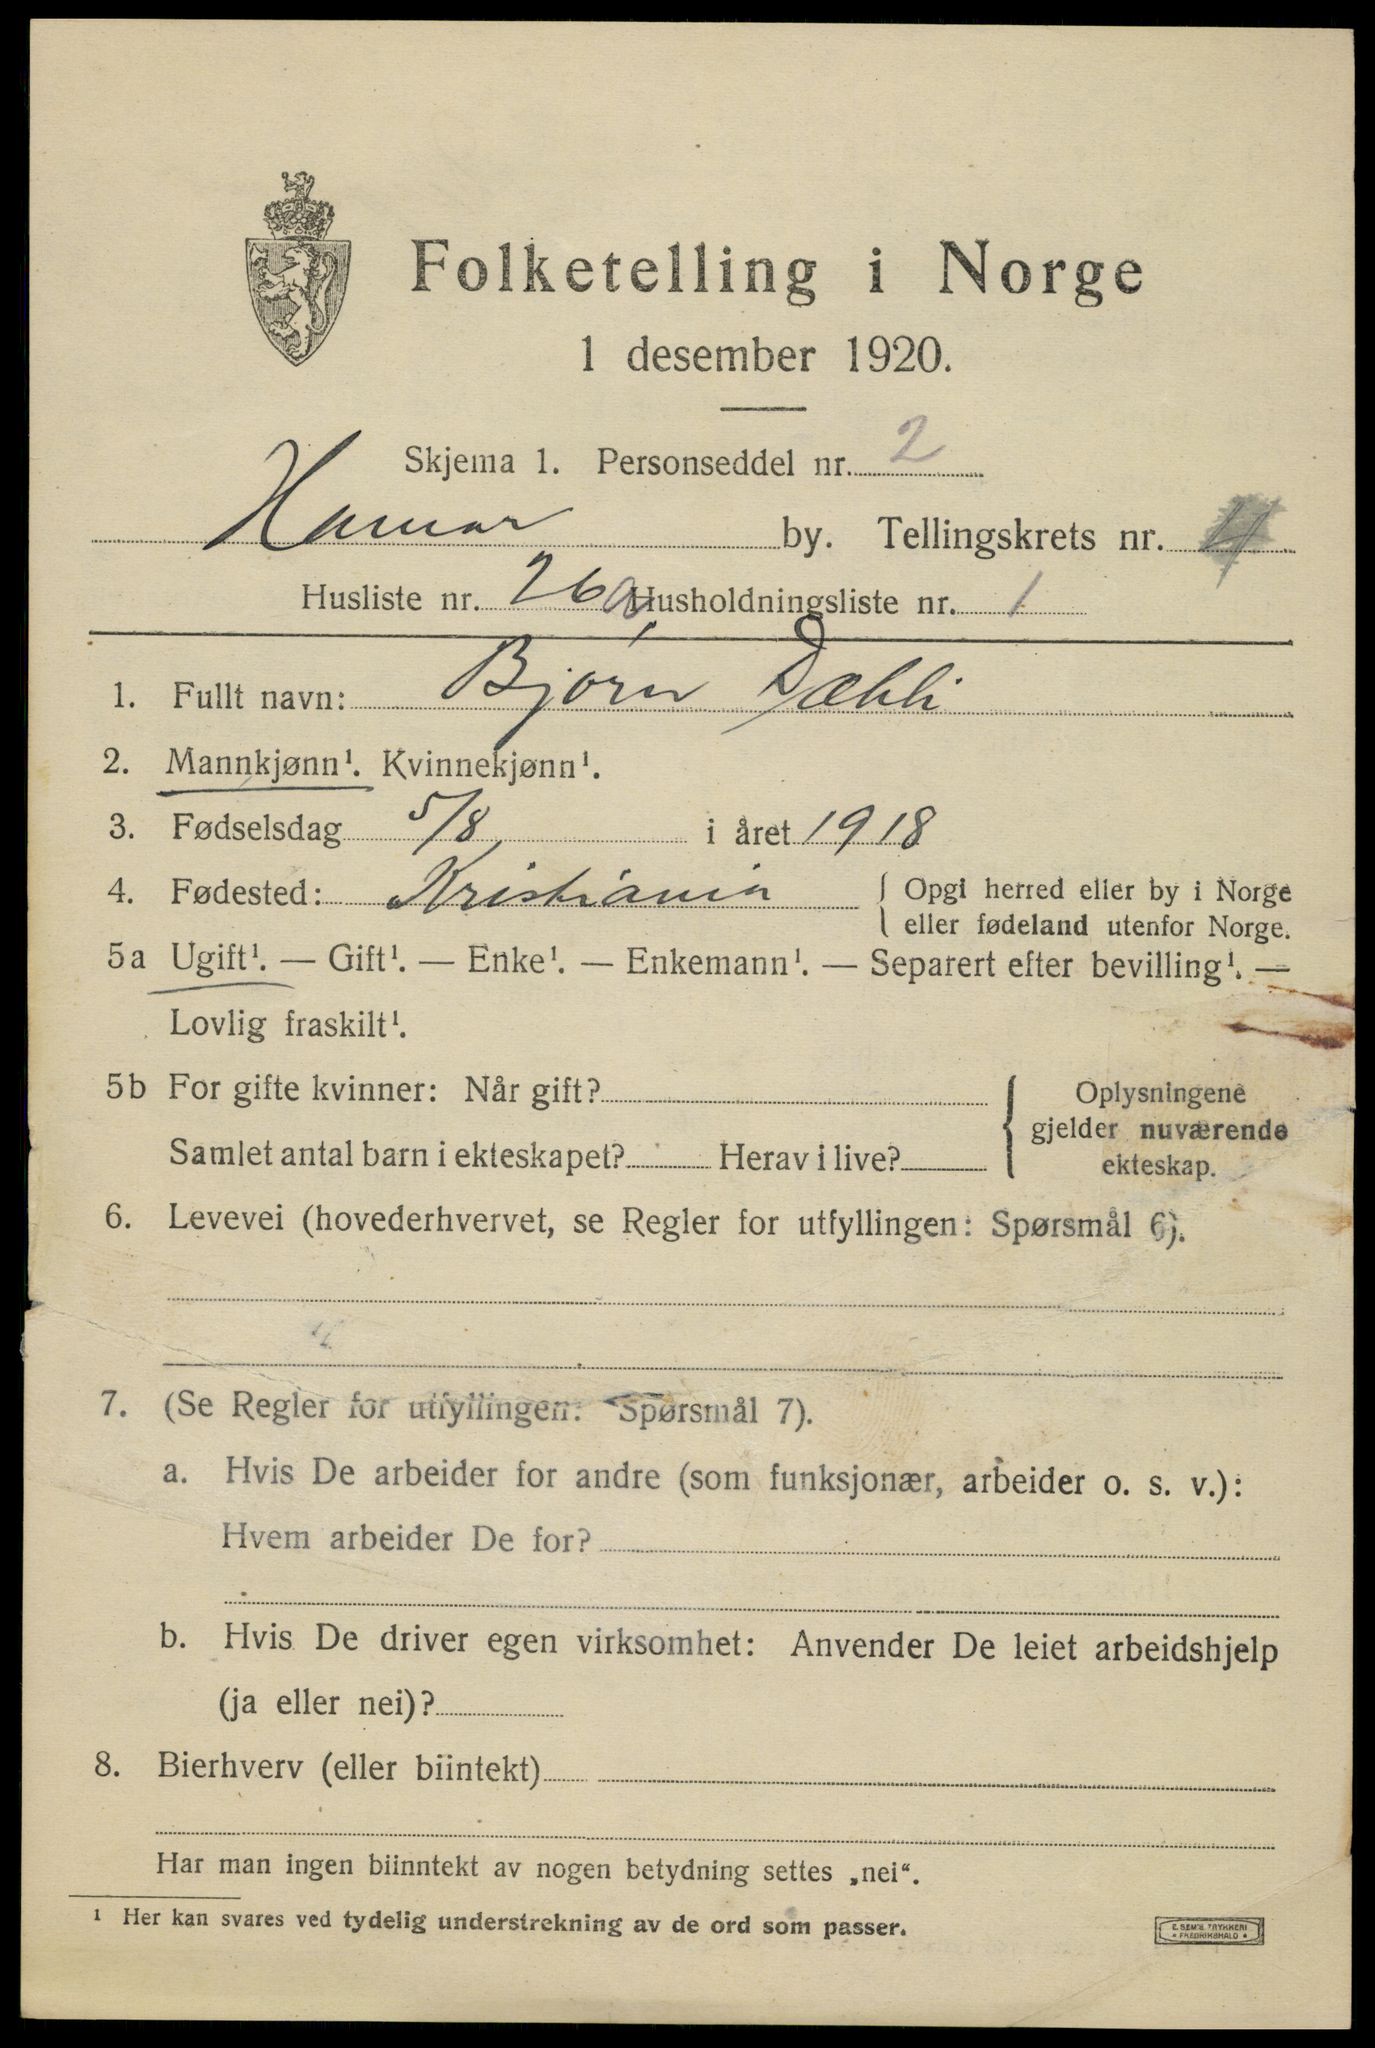 Folketelling i Norge
1 desember 1920.
Skjema 1. Personseddel nr. 2
Hamar by. Tellingskrets nr. 4
Husliste nr. 26a Husholdningsliste nr. 1
1. Fullt navn: Bjørn Dæhli
2. Mannkjønn¹. Kvinnekjønn¹.
3. Fødselsdag 5/8 i året 1918
4. Fødested: Kristiania { Opgi herred eller by i Norge
eller fødeland utenfor Norge.
5a Ugift¹. — Gift¹. — Enke¹. — Enkemann¹. — Separert efter bevilling¹. —
Lovlig fraskilt¹.
5b For gifte kvinner: Når gift? { Oplysningene
gjelder nuværende
Samlet antal barn i ekteskapet? Herav i live? ekteskap.
6. Levevei (hovederhvervet, se Regler for utfyllingen: Spørsmål 6).
7. (Se Regler for utfyllingen: Spørsmål 7).
a. Hvis De arbeider for andre (som funksjonær, arbeider o. s. v.):
Hvem arbeider De for?
b. Hvis De driver egen virksomhet: Anvender De leiet arbeidshjelp
(ja eller nei)?
8. Bierhverv (eller biintekt)
Har man ingen biinntekt av nogen betydning settes „nei“.
¹ Her kan svares ved tydelig understrekning av de ord som passer.
E. SEM'S TRYKKERI
* FREDRIKSHALD *